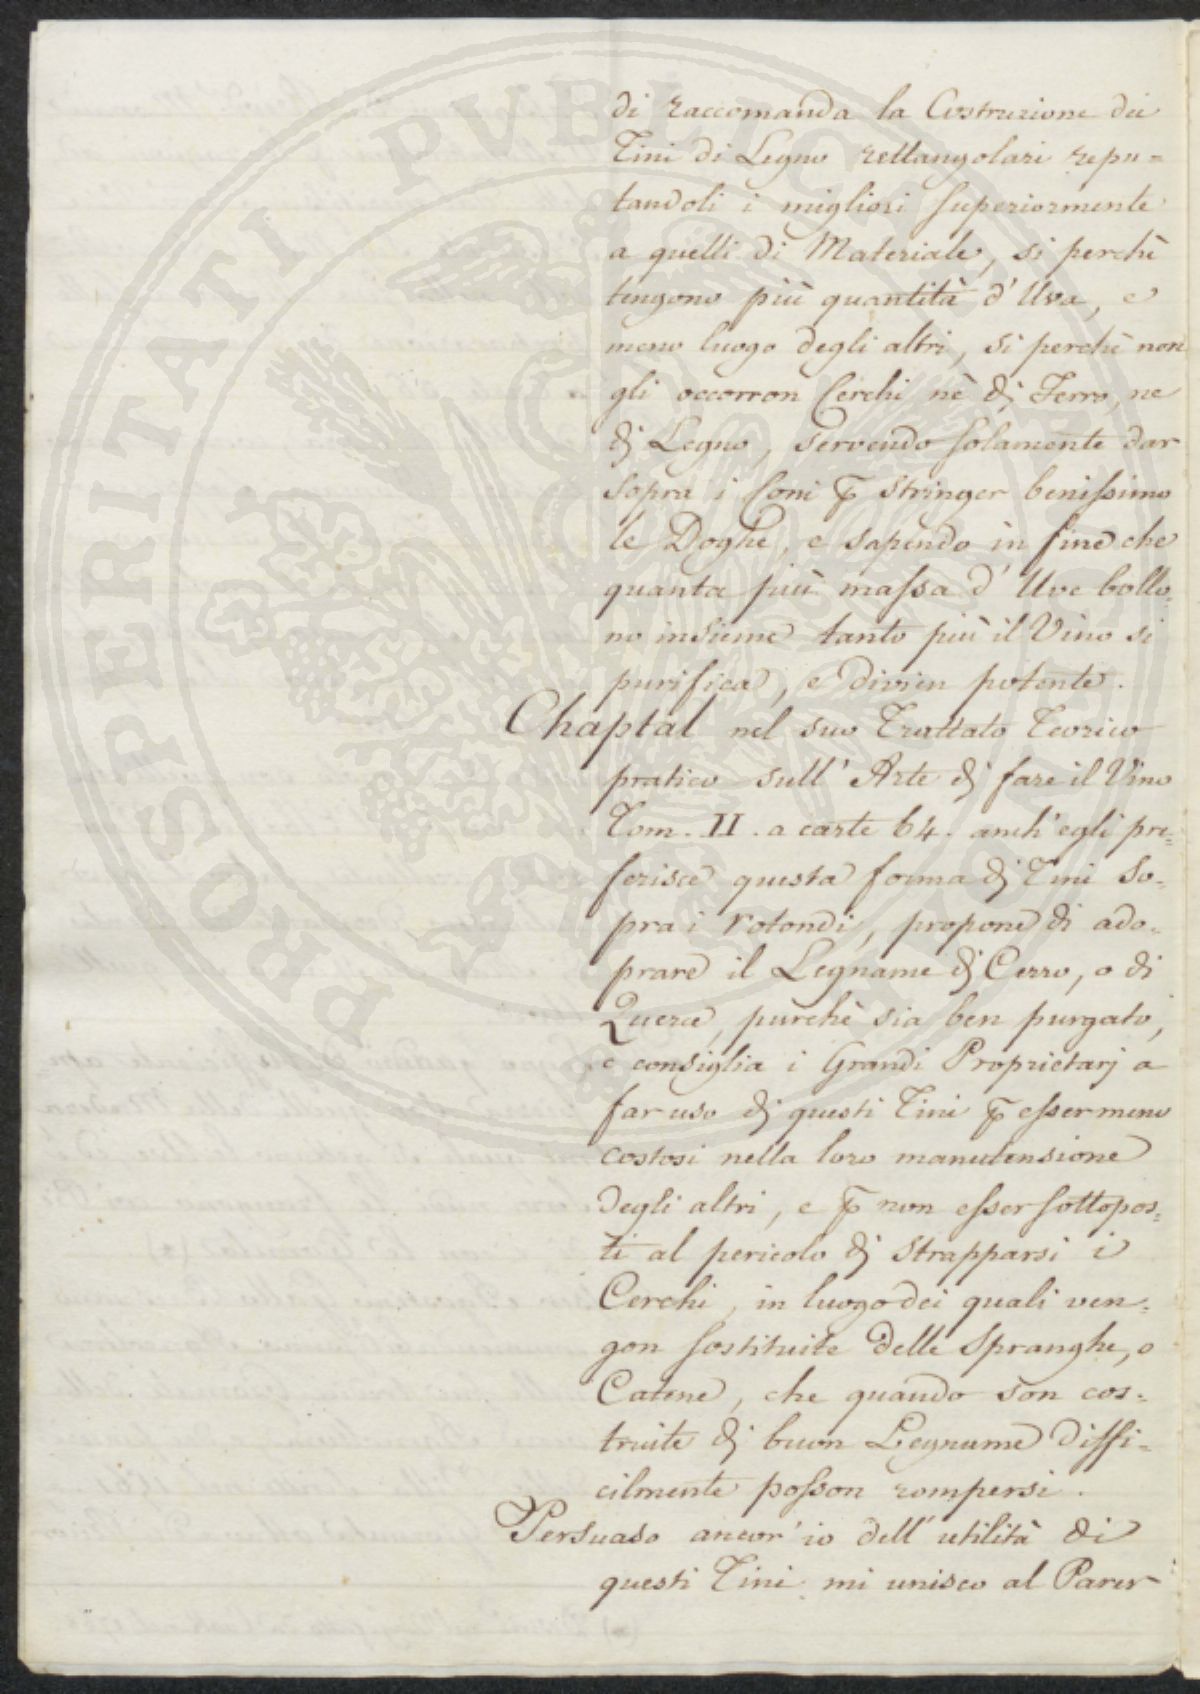 di raccomanda la Costruzione dei
Tini di Legno rettangolari repu=
tandoli i migliori superiormente
a quelli di Materiale, si perchè
tengono più quantità d'Uva, e
meno luogo degli altri, si perchè non
gli occorron Cerchi nè di Ferro, ne
di Legno, servendo solamente dar
sopra i Coni p stringer benissimo
le Doghe, e sapendo in fine che
quanta più massa d'Uve bollo=
no insieme tanto più il Vino si
purifica, e divien potente.
Chaptal nel suo Trattato Teorico
pratico sull'Arte di fare il Vino
Tom. II. a carte 64. anch'egli pre=
ferisce questa forma di Tini So=
pra i rotondi, propone di ado=
prare il Legname di Cerro, o di
Querce, purchè sia ben purgato,
e consiglia i Grandi Proprietarj a
far uso di questi Tini p esser meno
costosi nella loro manutensione
degli altri, e p non esser sottopos=
ti al pericolo di strapparsi i
Cerchi, in luogo dei quali ven=
gon sostituite delle Spranghe, o
Catene, che quando son cos=
truite di buon Legname diffi=
cilmente posson rompersi.
Persuaso ancor'io dell'utilità di
questi Tini mi unisco al Parer
PROSPERITATI PVBLICAE